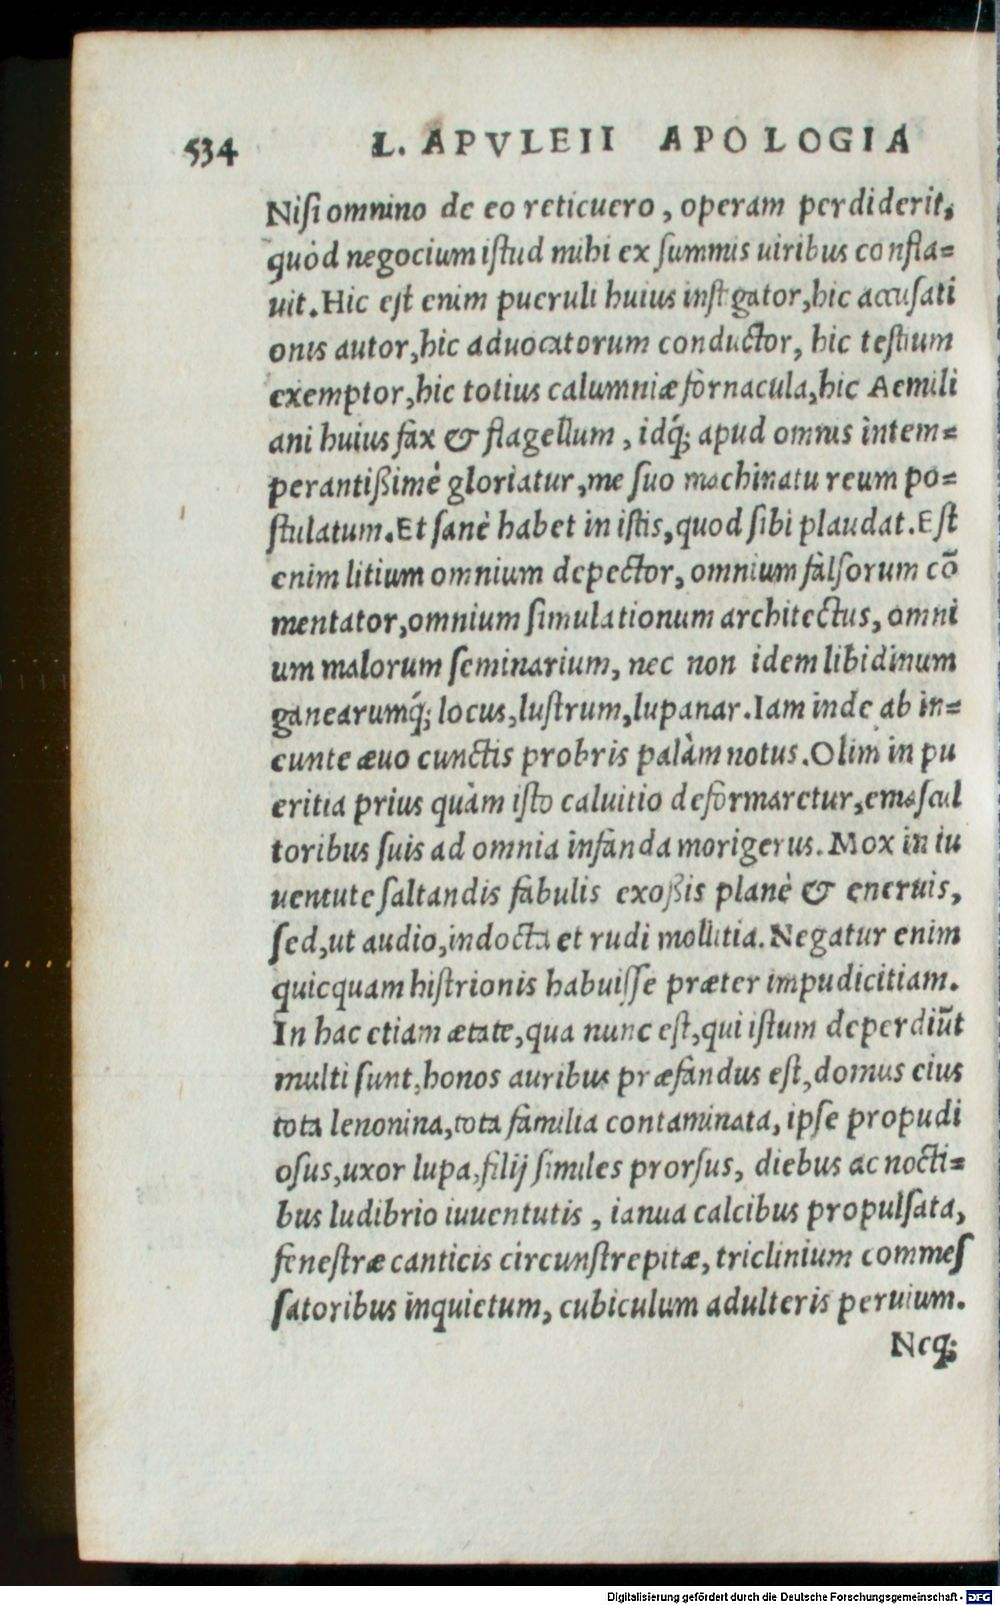 534 L. APVLEII APOLOGIA
Niſi omnino de eo reticuero, operam perdiderit,
quòd negocium iſtud mihi ex ſummis uiribus confla=
uit. Hic eſt enim pueruli huius inſtigator, hic accuſati
onis autor, hic aduocatorum conductor, hic teſtium
exemptor, hic totius calumniæ fornacula, hic Aemili
ani huius fax & flagellum, idq́; apud omnis intem=
perantißimè gloriatur, me ſuo machinatu reum po=
ſtulatum. Et ſanè habet in iſtis, quod ſibi plaudat. Eſt
enim litium omnium depector, omnium falſorum cō
mentator, omnium ſimulationum architectus, omni
um malorum ſeminarium, nec non idem libidinum
ganearumq́; locus, luſtrum, lupanar. Iam inde ab in=
eunte æuo cunctis probris palàm notus. Olim in pu
eritia prius quàm iſto caluitio deformaretur, emaſcul
toribus ſuis ad omnia infanda morigerus. Mox in iu
uentute ſaltandis fabulis exoßis planè & eneruis,
ſed, ut audio, indocta et rudi mollitia. Negatur enim
quicquam hiſtrionis habuiſſe præter impudicitiam.
In hac etiam ætate, qua nunc eſt, qui iſtum deperdiūt
multi ſunt, honos auribus præfandus eſt, domus eius
tota lenonina, tota familia contaminata, ipſe propudi
oſus, uxor lupa, filij ſimiles prorſus, diebus ac nocti=
bus ludibrio iuuentutis, ianua calcibus propulſata,
feneſtræ canticis circunſtrepitæ, triclinium commeſ
ſatoribus inquietum, cubiculum adulteris peruium.
Neq;
Digitalisierung gefördert durch die Deutsche Forschungsgemeinschaft - DFG